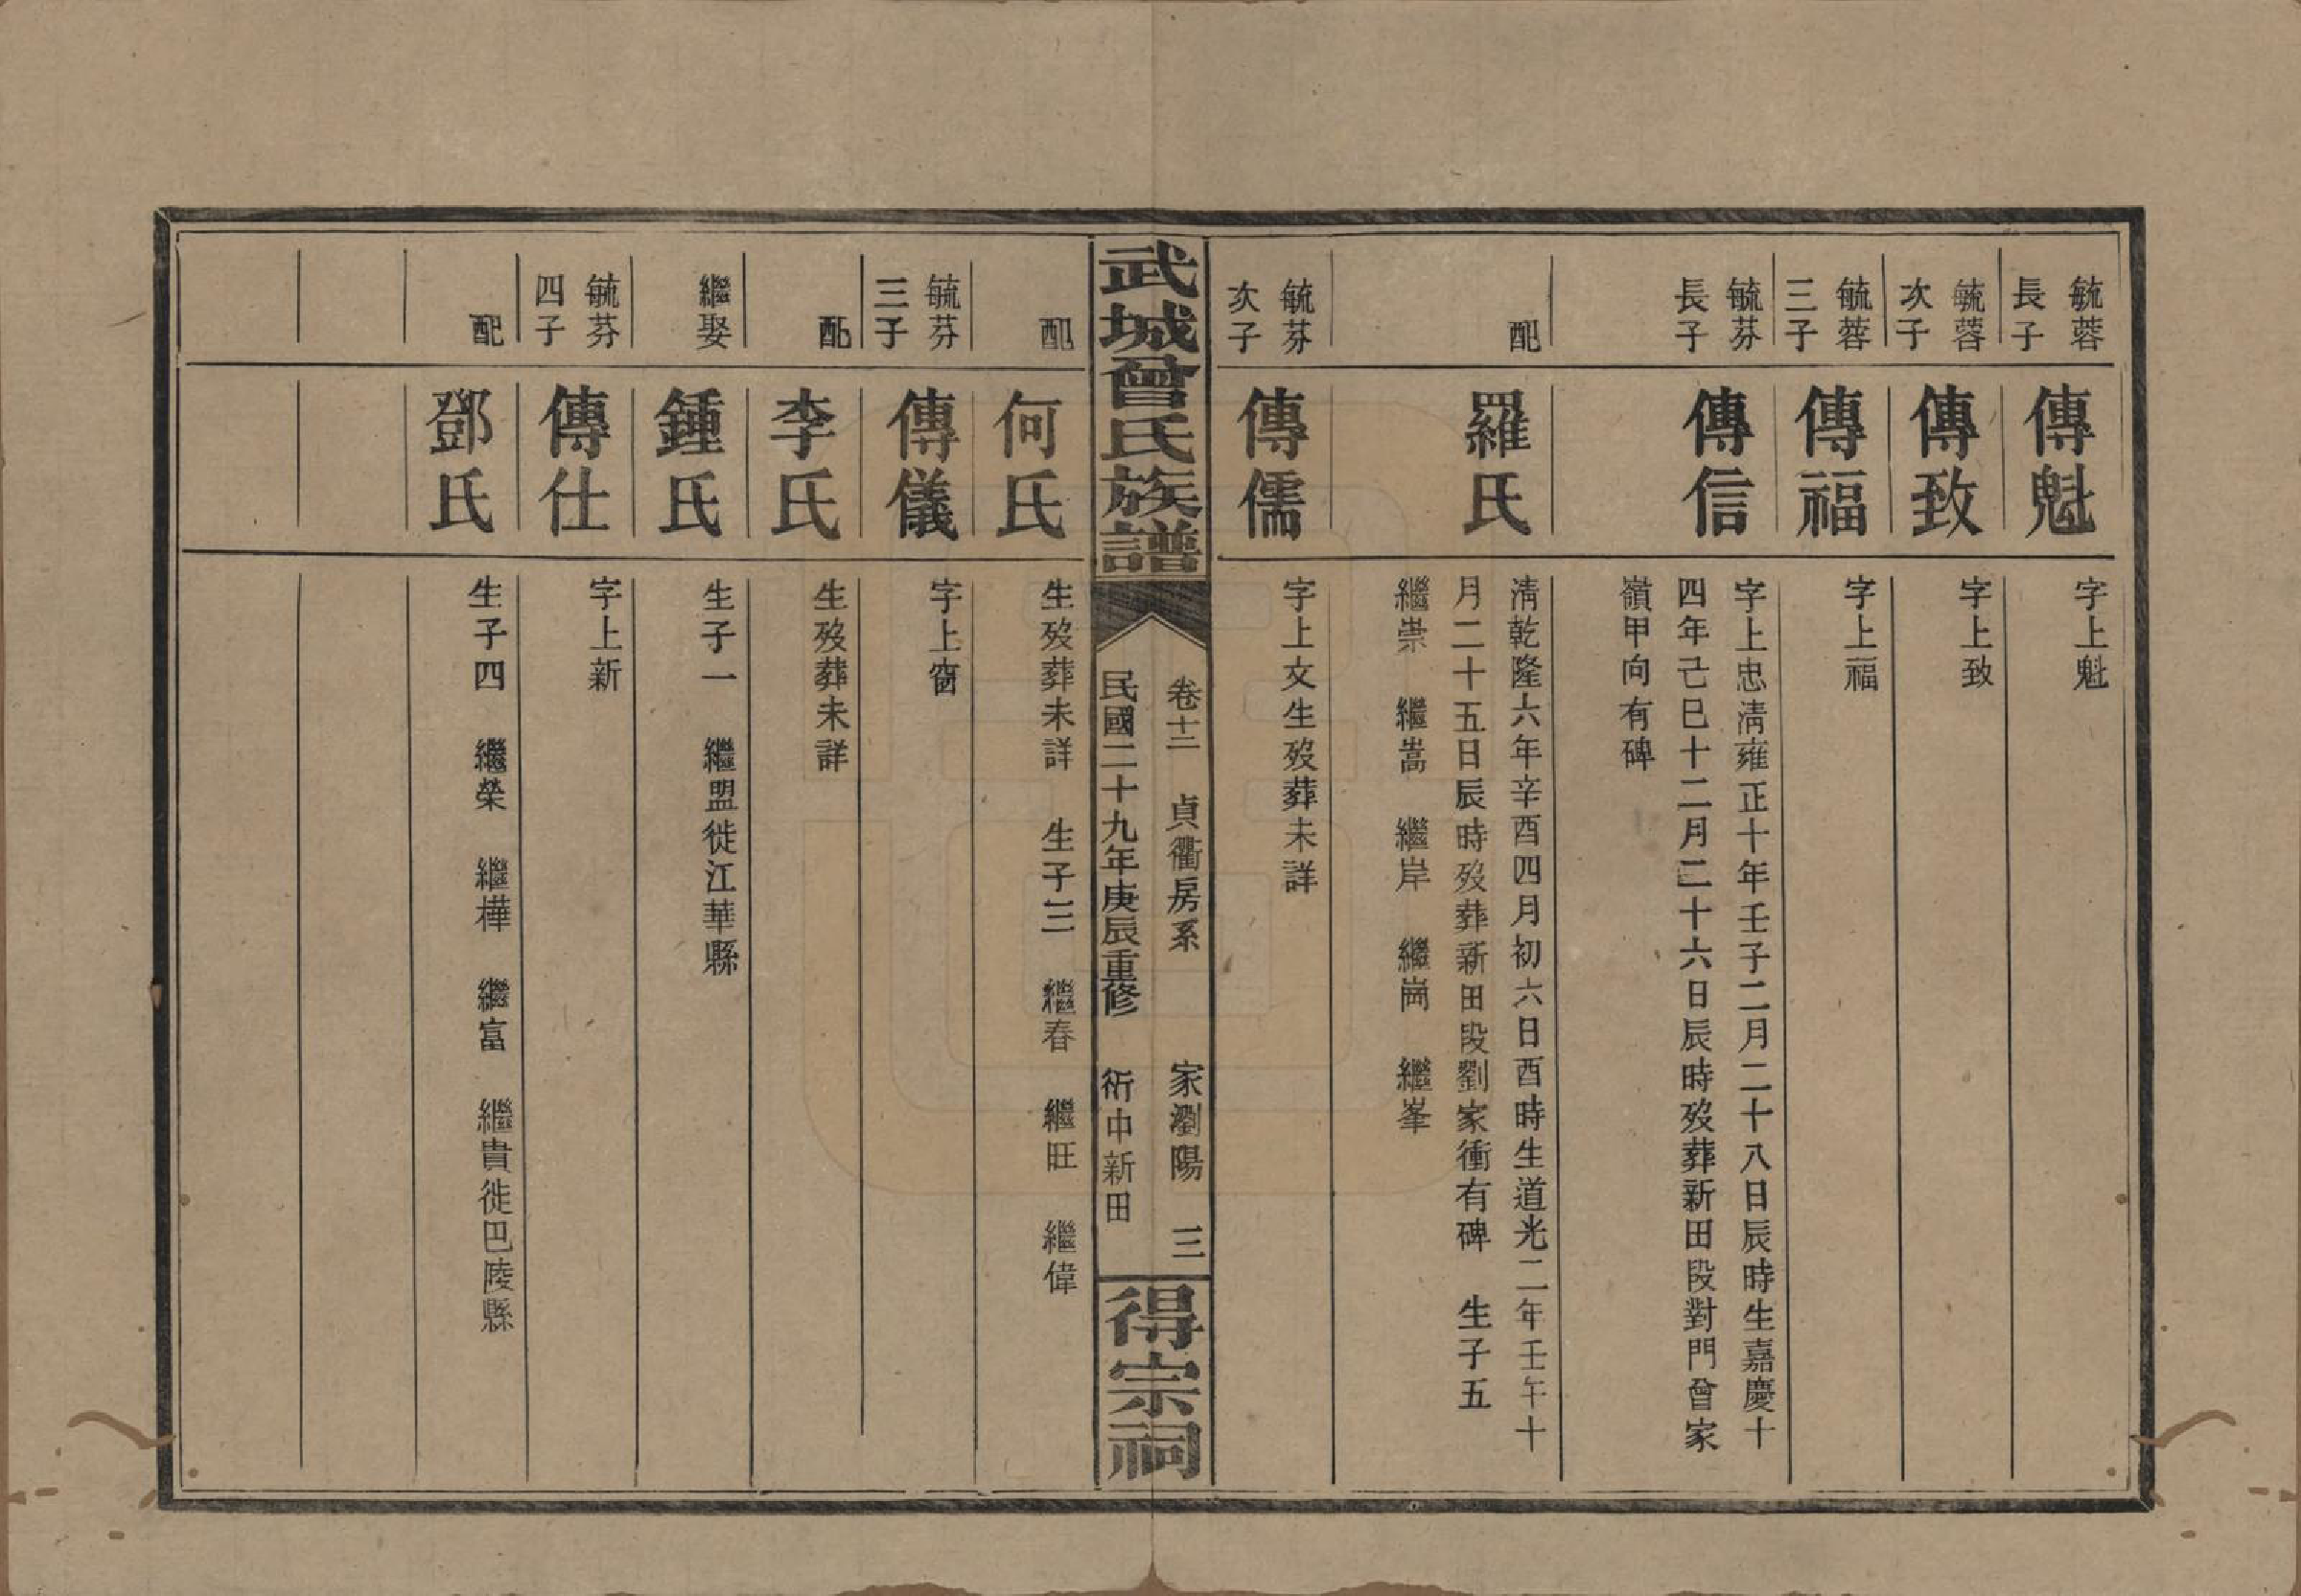 毓蓉
長子
傳魁
字上魁
毓蓉
次子
傳致
字上致
毓蓉
三子
傳福
字上福
毓芬
長子
傳信
字上忠清雍正十年壬子二月二十八日辰時生嘉慶十
四年己巳十二月二十六日辰時歿葬新田段對門曾家
嶺甲向有碑
配
羅氏
清乾隆六年辛酉四月初六日酉時生道光二年壬午十
月二十五日辰時歿葬新田段劉家衝有碑 生子五
繼崇 繼嵩 繼岸 繼崗 繼峯
毓芬
次子
傳儒
字上文生歿葬未詳
武城曾氏族譜
卷十二 貞衢房系 家瀏陽 三
民國二十九年庚辰重修 衍中新田
得宗祠
配
何氏
生歿葬未詳 生子三 繼春 繼旺 繼偉
毓芬
三子
傳儀
字上窗
配
李氏
生歿葬未詳
繼娶
鍾氏
生子一 繼盟徙江華縣
毓芬
四子
傳仕
字上新
配
鄧氏
生子四 繼榮 繼樺 繼富 繼貴徙巴陵縣